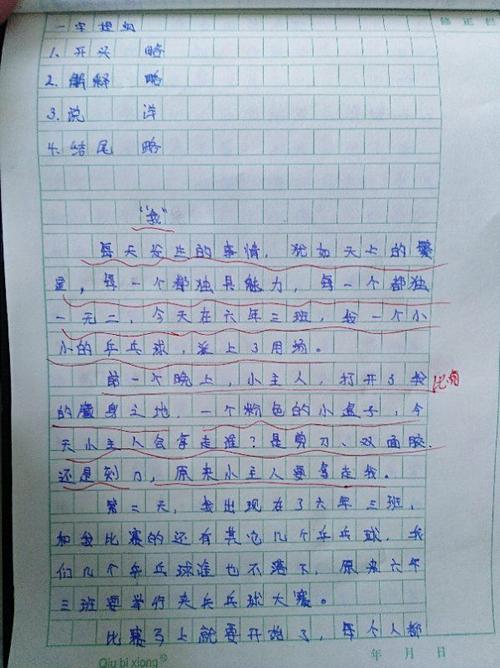 修正栏
一字提纲
1. 开头 略
2. 解释 略
3. 说 详
4. 结尾 略
"我"
每天发生的事情，犹如天上的繁
星，每一个都独具魅力，每一个都独
一无二，今天在六年三班，我一个小
小的乒乓球，派上了用场。
前一个晚上，小主人，打开了我 比自
的藏身之地，一个粉色的小盒子，今
天小主人会拿走谁？是剪刀、双面胶、
还是刻刀，原来小主人要拿走我。
第二天，我出现在了六年三班，
和我比赛的还有其它几个乒乓球，我
们几个乒乓球谁也不落下，原来六年
三班要举行夹乒乓球大赛。
比赛马上就要开始了，每个人都
Qiu bi xiong®
年 月 日